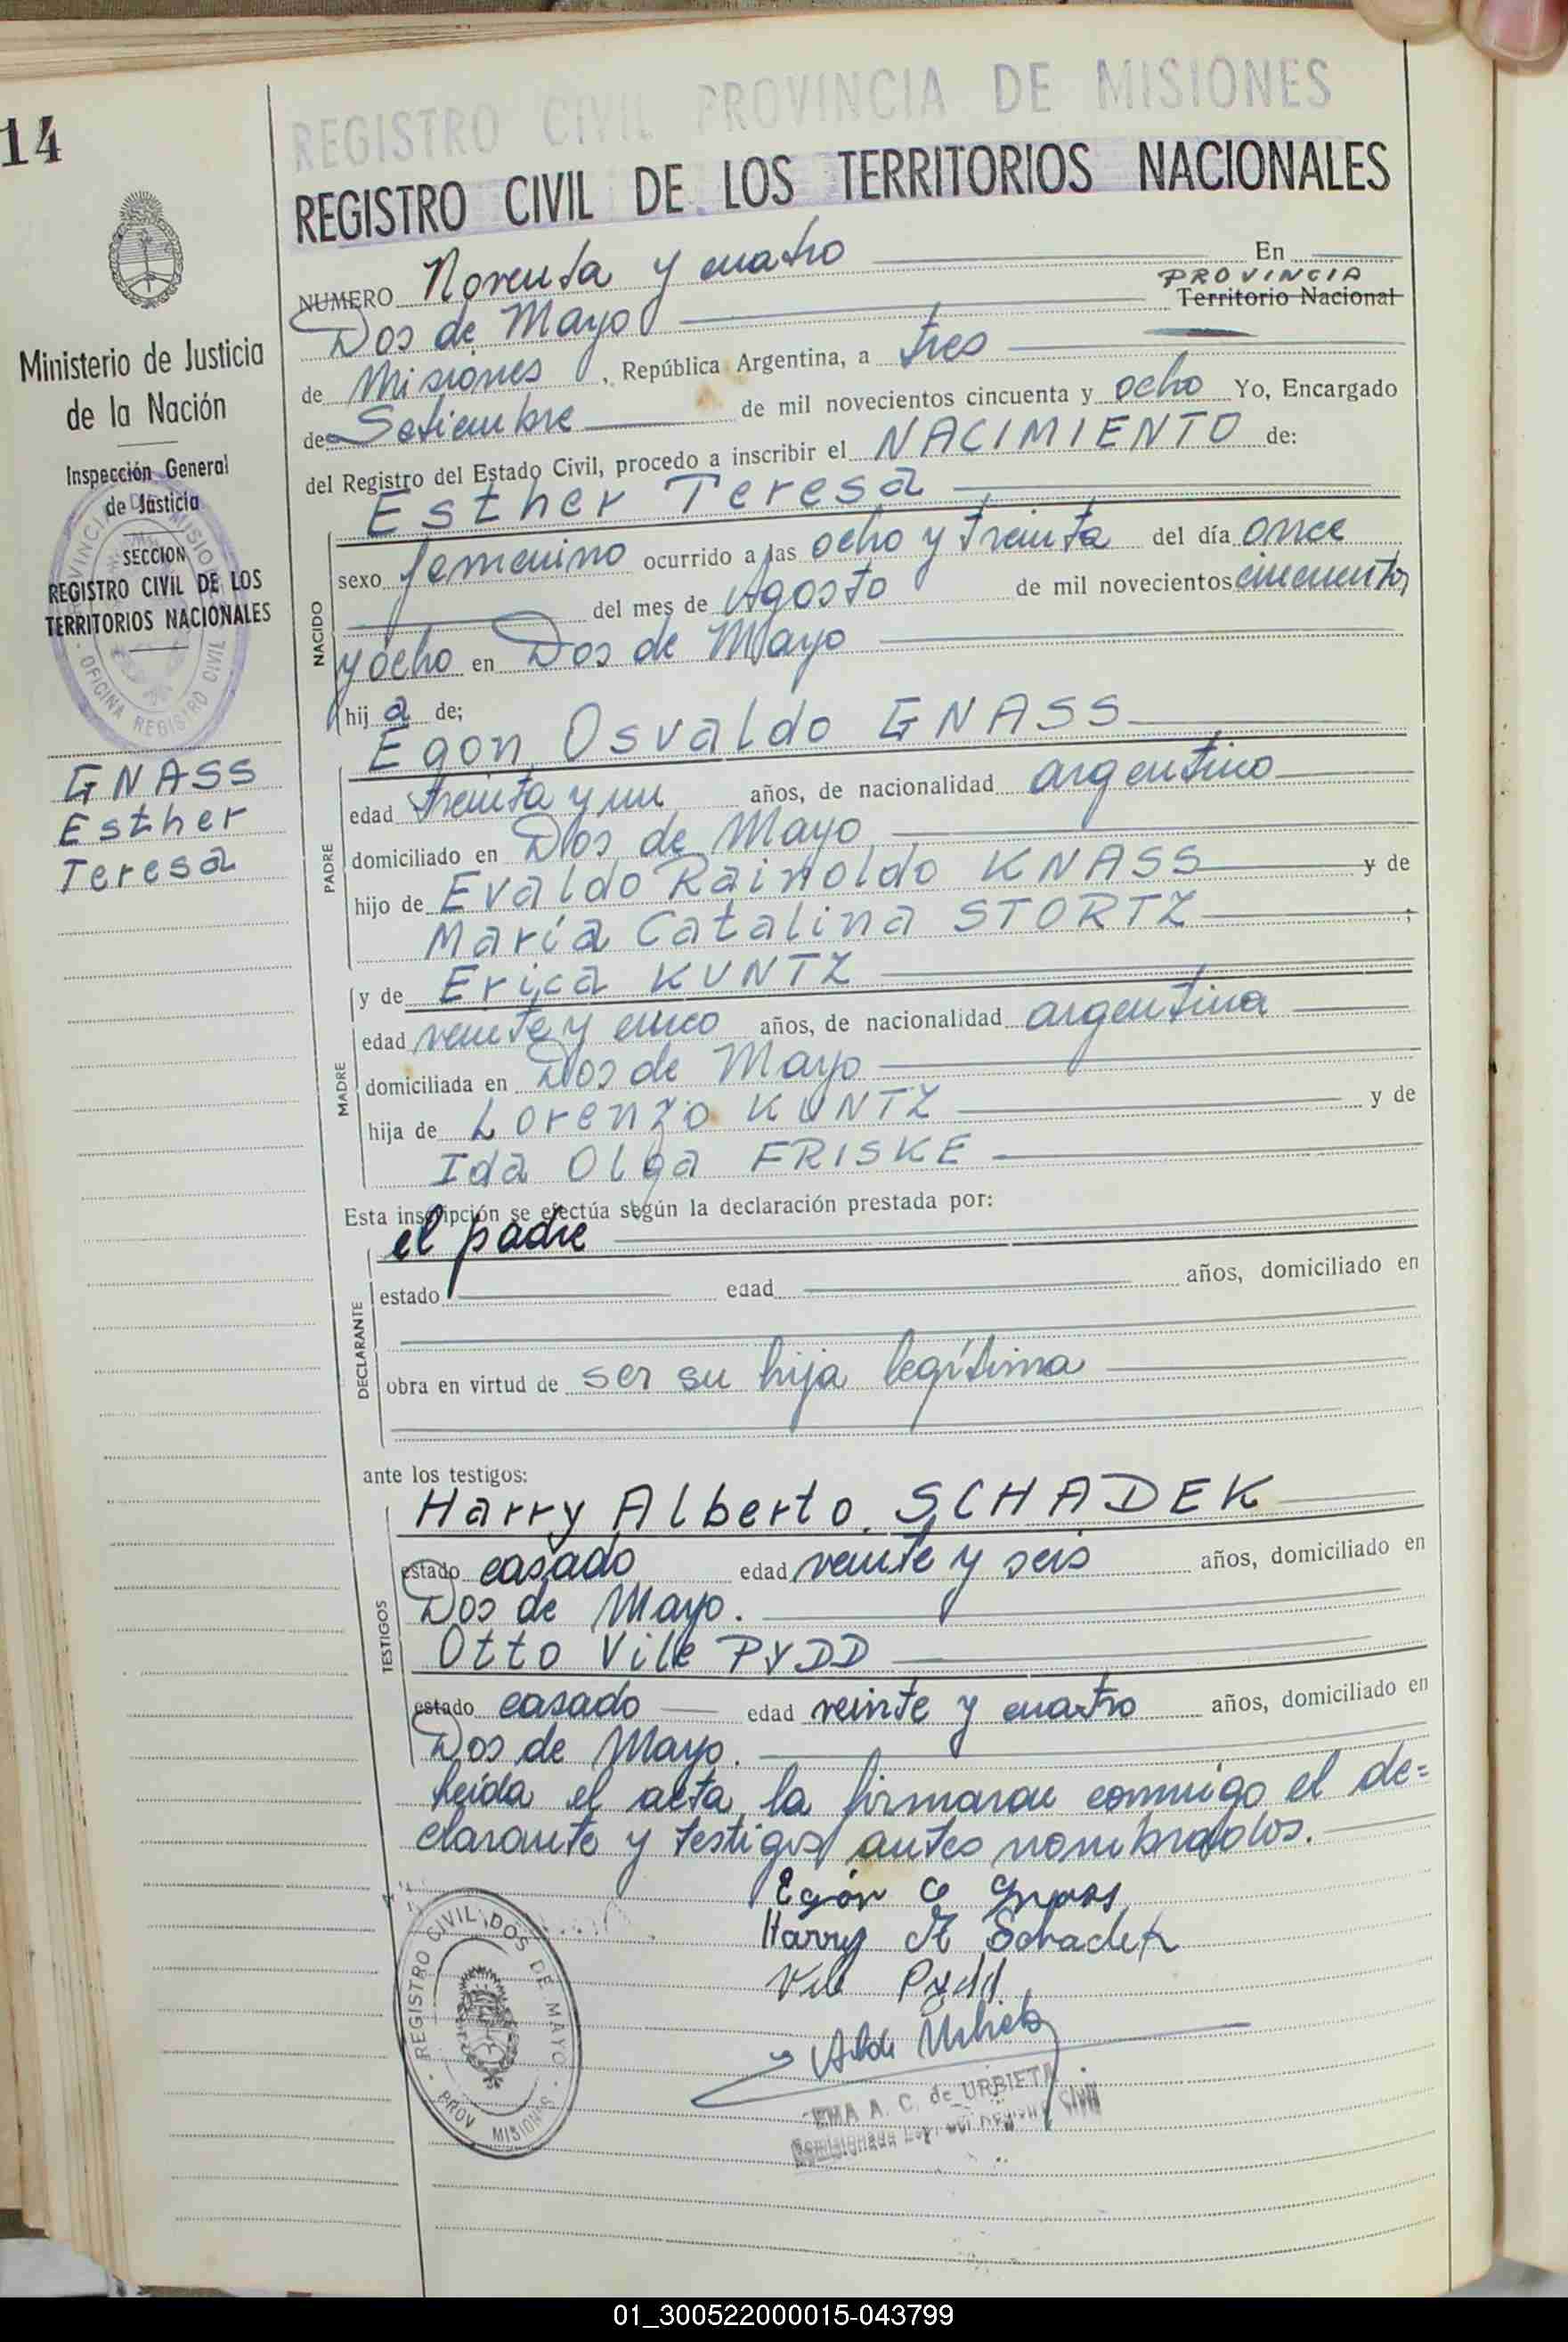 14
REGISTRO CIVIL PROVINCIA DE MISIONES
REGISTRO CIVIL DE LOS TERRITORIOS NACIONALES
Ministerio de Justicia
de la Nación
Inspección General
de Justicia
SECCION
REGISTRO CIVIL DE LOS
TERRITORIOS NACIONALES
OFICINA REGISTRO CIVIL
GNASS
Esther
Teresa
NUMERO Noventa y cuatro En
PROVINCIA
Dos de Mayo Territorio Nacional
de Misiones, República Argentina, a tres
de Setiembre de mil novecientos cincuenta y ocho Yo, Encargado
del Registro del Estado Civil, procedo a inscribir el NACIMIENTO de:
Esther Teresa
NACIDO
sexo femenino ocurrido a las ocho y treinta del día once
del mes de Agosto de mil novecientos cincuenta
y ocho en Dos de Mayo
hija de;
Egon Osvaldo GNASS
PADRE
edad treinta y un años, de nacionalidad argentino
domiciliado en Dos de Mayo
hijo de Evaldo Rainoldo KNASS y de
María Catalina STORTZ;
y de Erica KUNTZ
MADRE
edad veinte y cinco años, de nacionalidad argentina
domiciliada en Dos de Mayo
hija de Lorenzo KUNTZ y de
Ida Olga FRISKE
Esta inscripción se efectúa según la declaración prestada por:
el padre
DECLARANTE
estado edad años, domiciliado en
obra en virtud de ser su hija legítima
ante los testigos:
Harry Alberto SCHADEK
TESTIGOS
estado casado edad veinte y seis años, domiciliado en
Dos de Mayo.
Otto Vile PYDD
estado casado edad veinte y cuatro años, domiciliado en
Dos de Mayo.
Leída el acta, la firmaron conmigo el de=
clarante y testigos antes nombrados.
Egon O Gnass
Harry A Schadek
Vile Pydd
REGISTRO CIVIL DOS DE MAYO
PROV MISIONES
A. C. de URBIETA
01_300522000015-043799